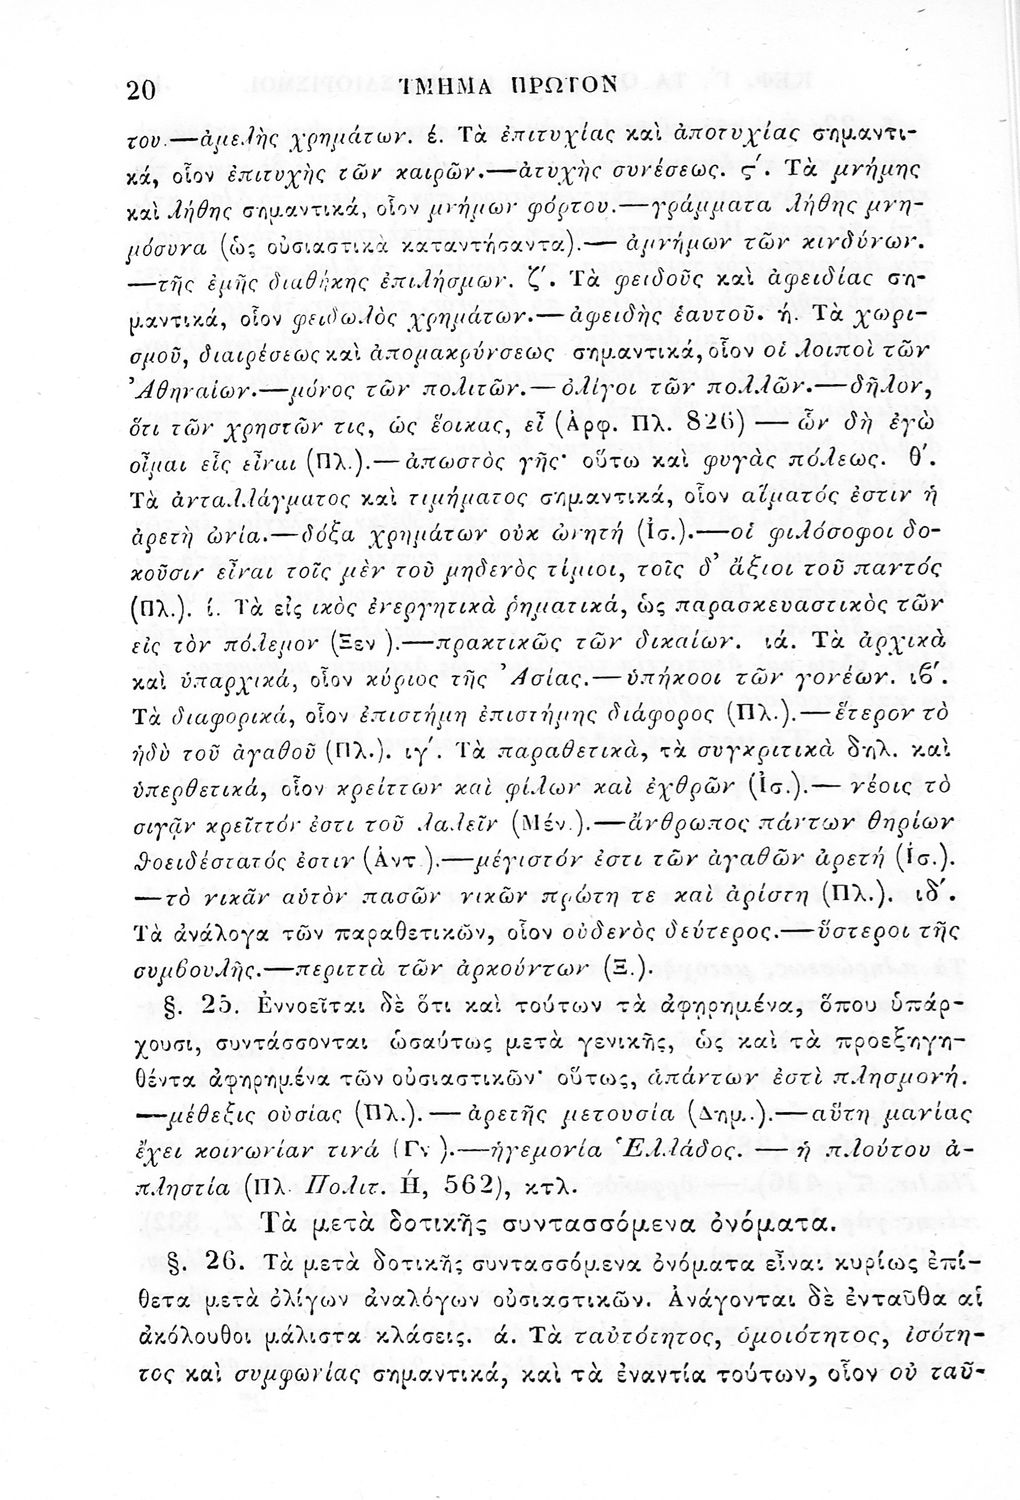 20 ΤΜΗΜΑ ΠΡΩΤΟΝ
του.—ἀμελὴς χρημάτων. έ. Τὰ ἐπιτυχίας καὶ ἀποτυχίας σημαντι-
κά, οἷον ἐπιτυχὴς τῶν καιρῶν.—ἀτυχὴς συνέσεως. ϛ΄. Τὰ μνήμης
καὶ λήθης σημαντικά, οἷον μνήμων φόρτου.—γράμματα λήθης μνη-
μόσυνα (ὡς οὐσιαστικὰ καταντήσαντα).— ἀμνήμων τῶν κινδύνων.
—τῆς ἐμῆς διαθήκης ἐπιλήσμων. ζ΄. Τὰ φειδοῦς καὶ ἀφειδίας ση-
μαντικά, οἷον φειδωλὸς χρημάτων.— ἀφειδὴς ἑαυτοῦ. ή. Τὰ χωρι-
σμοῦ, διαιρέσεως καὶ ἀπομακρύνσεως σημαντικά, οἷον οἱ λοιποὶ τῶν
Ἀθηναίων.—μόνος τῶν πολιτῶν.— ὀλίγοι τῶν πολλῶν.—δῆλον,
ὅτι τῶν χρηστῶν τις, ὡς ἔοικας, εἶ (Ἀρφ. Πλ. 826) — ὧν δὴ ἐγὼ
οἶμαι εἷς εἶναι (Πλ.).— ἀπωστὸς γῆς· οὕτω καὶ φυγὰς πόλεως. θ΄.
Τὰ ἀνταλλάγματος καὶ τιμήματος σημαντικά, οἷον αἵματός ἐστιν ἡ
ἀρετὴ ὠνία.—δόξα χρημάτων οὐκ ὠνητή (Ἰσ.).—οἱ φιλόσοφοι δο-
κοῦσιν εἶναι τοῖς μὲν τοῦ μηδενὸς τίμιοι, τοῖς δ' ἄξιοι τοῦ παντός
(Πλ.). ί. Τὰ εἰς ικὸς ἐνεργητικὰ ῥηματικά, ὡς παρασκευαστικὸς τῶν
εἰς τὸν πόλεμον (Ξεν ).—πρακτικῶς τῶν δικαίων. ιά. Τὰ ἀρχικὰ
καὶ ὑπαρχικά, οἷον κύριος τῆς Ἀσίας.— ὑπήκοοι τῶν γονέων. ιϐ΄.
Τὰ διαφορικά, οἷον ἐπιστήμη ἐπιστήμης διάφορος (Πλ.).— ἕτερον τὸ
ἡδὺ τοῦ ἀγαθοῦ (Πλ.). ιγ΄. Τὰ παραθετικὰ, τὰ συγκριτικὰ δηλ. καὶ
ὑπερθετικά, οἷον κρείττων καὶ φίλων καὶ ἐχθρῶν (Ἰσ.).— νέοις τὸ
σιγᾷν κρεῖττόν ἐστι τοῦ λαλεῖν (Μέν.).—ἄνθρωπος πάντων θηρίων
θοειδέστατός ἐστιν (Ἀντ ).—μέγιστόν ἐστι τῶν ἀγαθῶν ἀρετή (Ἰσ.).
—τὸ νικᾶν αὑτὸν πασῶν νικῶν πρώτη τε καὶ ἀρίστη (Πλ.). ιδ΄.
Τὰ ἀνάλογα τῶν παραθετικῶν, οἷον οὐδενὸς δεύτερος.—ὕστεροι τῆς
συμβουλῆς.—περιττὰ τῶν ἀρκούντων (Ξ.).
§. 25. Ἐννοεῖται δὲ ὅτι καὶ τούτων τὰ ἀφῃρημένα, ὅπου ὑπάρ-
χουσι, συντάσσονται ὡσαύτως μετὰ γενικῆς, ὡς καὶ τὰ προεξηγη-
θέντα ἀφηρημένα τῶν οὐσιαστικῶν· οὕτως, ἁπάντων ἐστὶ πλησμονή.
—μέθεξις οὐσίας (Πλ.). — ἀρετῆς μετουσία (Δημ.).—αὕτη μανίας
ἔχει κοινωνίαν τινά (Γν ).—ἡγεμονία Ἑλλάδος. — ἡ πλούτου ἀ-
πληστία (Πλ. Πολιτ. Ή, 562), κτλ.
Τὰ μετὰ δοτικῆς συντασσόμενα ὀνόματα.
§. 26. Τὰ μετὰ δοτικῆς συντασσόμενα ὀνόματα εἶναι κυρίως ἐπί-
θετα μετὰ ὀλίγων ἀναλόγων οὐσιαστικῶν. Ἀνάγονται δὲ ἐνταῦθα αἱ
ἀκόλουθοι μάλιστα κλάσεις. ά. Τὰ ταὐτότητος, ὁμοιότητος, ἰσότη-
τος καὶ συμφωνίας σημαντικά, καὶ τὰ ἐναντία τούτων, οἷον οὐ ταῦ-